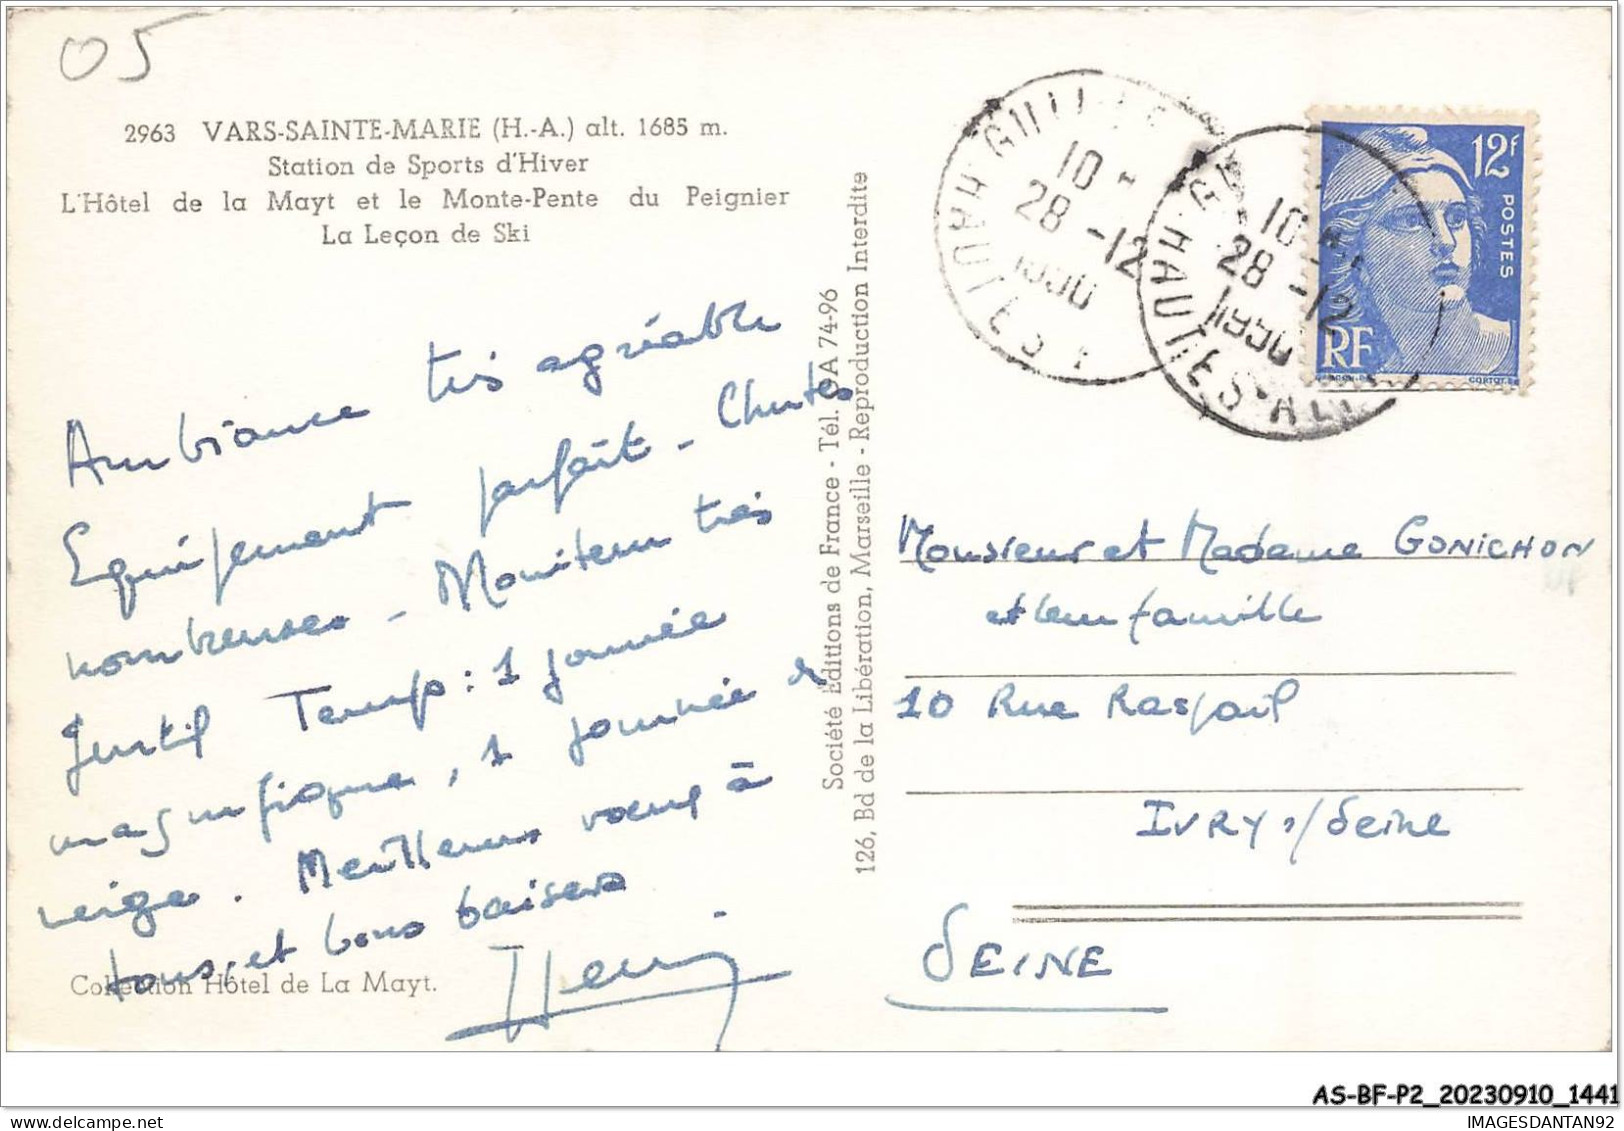 05
2963 VARS-SAINTE-MARIE (H.-A.) alt. 1685 m.
Station de Sports d'Hiver
L'Hôtel de la Mayt et le Monte-Pente du Peignier
La Leçon de Ski
Ambiance très agréable
Equipement parfait - Chutes
nombreuses - Moniteur très
gentil Temps : 1 journée
magnifique, 1 journée de
neige. Meilleurs voeux à
tous, et bons baisers
Henri
Collection Hôtel de La Mayt.
Société Editions de France - Tél. GA 74-96
126, Bd de la Libération, Marseille - Reproduction Interdite
10 -
28 -12
1950
HAUTES
10
28 -12
1950
HAUTES-ALP
12F
POSTES
RF
GANDON
CORTOT
Monsieur et Madame GONICHON
et leur famille
10 Rue Raspail
IVRY s/Seine
SEINE
AS-BF-P2_20230910_1441
IMAGESDANTAN92